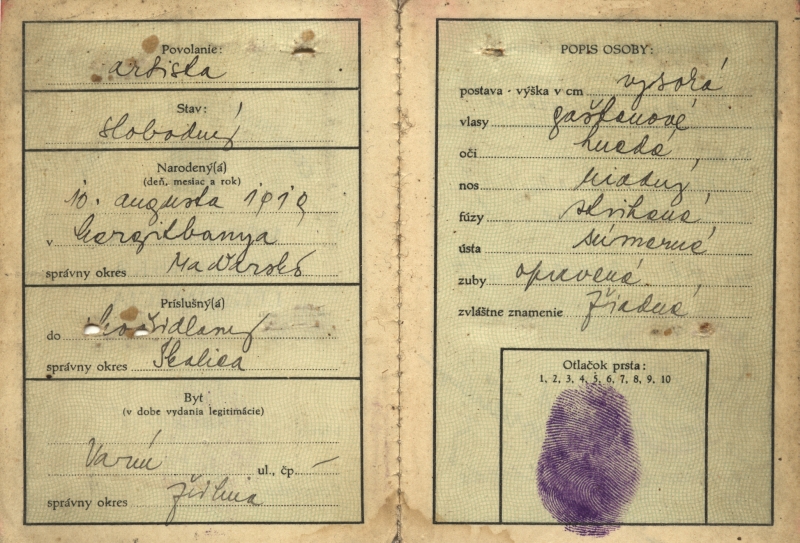 Povolanie:
artista
Stav:
slobodný
Narodený(á)
(deň, mesiac a rok)
10. augusta 1919
v Margitbanya
správny okres Maďarsko
Príslušný(á)
do
správny okres Skalica
Byt
(v dobe vydania legitimácie)
Varín
ul., čp. —
správny okres Žilina
POPIS OSOBY:
postava - výška v cm vysoká
vlasy gaštanové
oči hnedé
nos riadny
fúzy strihané
ústa súmerné
zuby opravené
zvláštne znamenie žiadné
Otlačok prsta:
1, 2, 3, 4, 5, 6, 7, 8, 9, 10